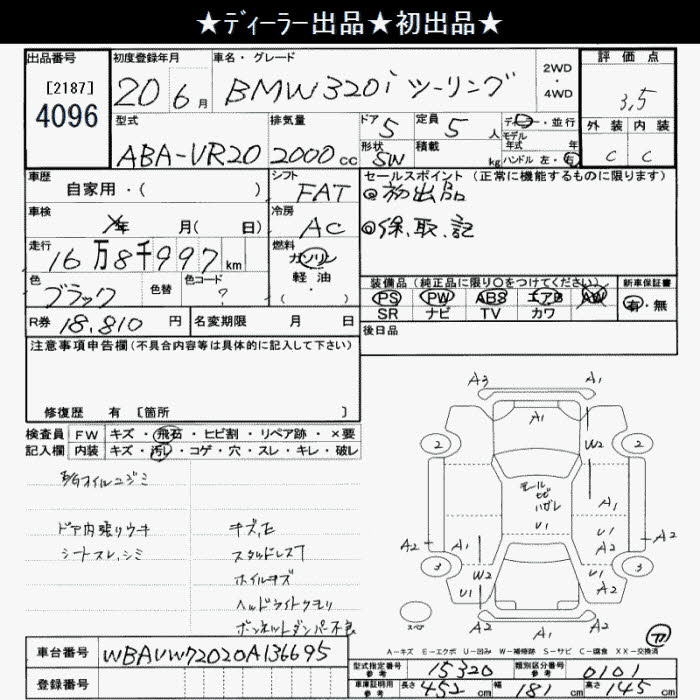 ★ディーラー出品★初出品★
出品番号
[2187]
4096
初度登録年月
20 6月
車名・グレード
BMW320i ツーリング
2WD
・
4WD
評価点
3.5
外装 内装
C C
型式
ABA-VR20
排気量
2000 cc
ドア 5
形状 SW
定員 5 人
積載 kg
ディーラー・並行
モデル年式 年
ハンドル 左・右
車歴
自家用・( )
シフト
FAT
セールスポイント(正常に機能するものに限ります)
◎初出品
◎保、取、記
車検
年 月( 日)
冷房
AC
走行
16万8千997 km
燃料
ガソリン
軽油
・( )
色
ブラック
色替
色コード
?
装備品(純正品に限り○をつけてください)
新車保証書
PS PW ABS エアB AW
有・無
SR ナビ TV カワ
R券 18,810 円
名変期限 月 日
後日品
注意事項申告欄(不具合内容等は具体的に記入して下さい)
修復歴 有 [箇所 ]
検査員 FW キズ・飛石・ヒビ割・リペア跡・×要
記入欄 内装 キズ・汚レ・コゲ・穴・スレ・キレ・破レ
オイルニジミ
ドア内張りウキ
シートスレ、シミ
スタッドレス7
ホイルキズ
ヘッドライトクモリ
ボンネットダンパー不良
A3 A1
A1
2 2
W2
モール
ヒビ
ハガレ
A1
U1 U1
A2 A1 A2 A2
3 3
W2 U1
U1 A2
A2
スペア
77
A-キズ E-エクボ U-凹み W-補修跡 S-サビ C-腐食 XX-交換済
車台番号
WBAVW72020A136695
登録番号
型式指定番号 参考 15320
類別区分番号 参考 0101
車庫証明用 参考 長さ 452 cm 幅 181 cm 高さ 145 cm